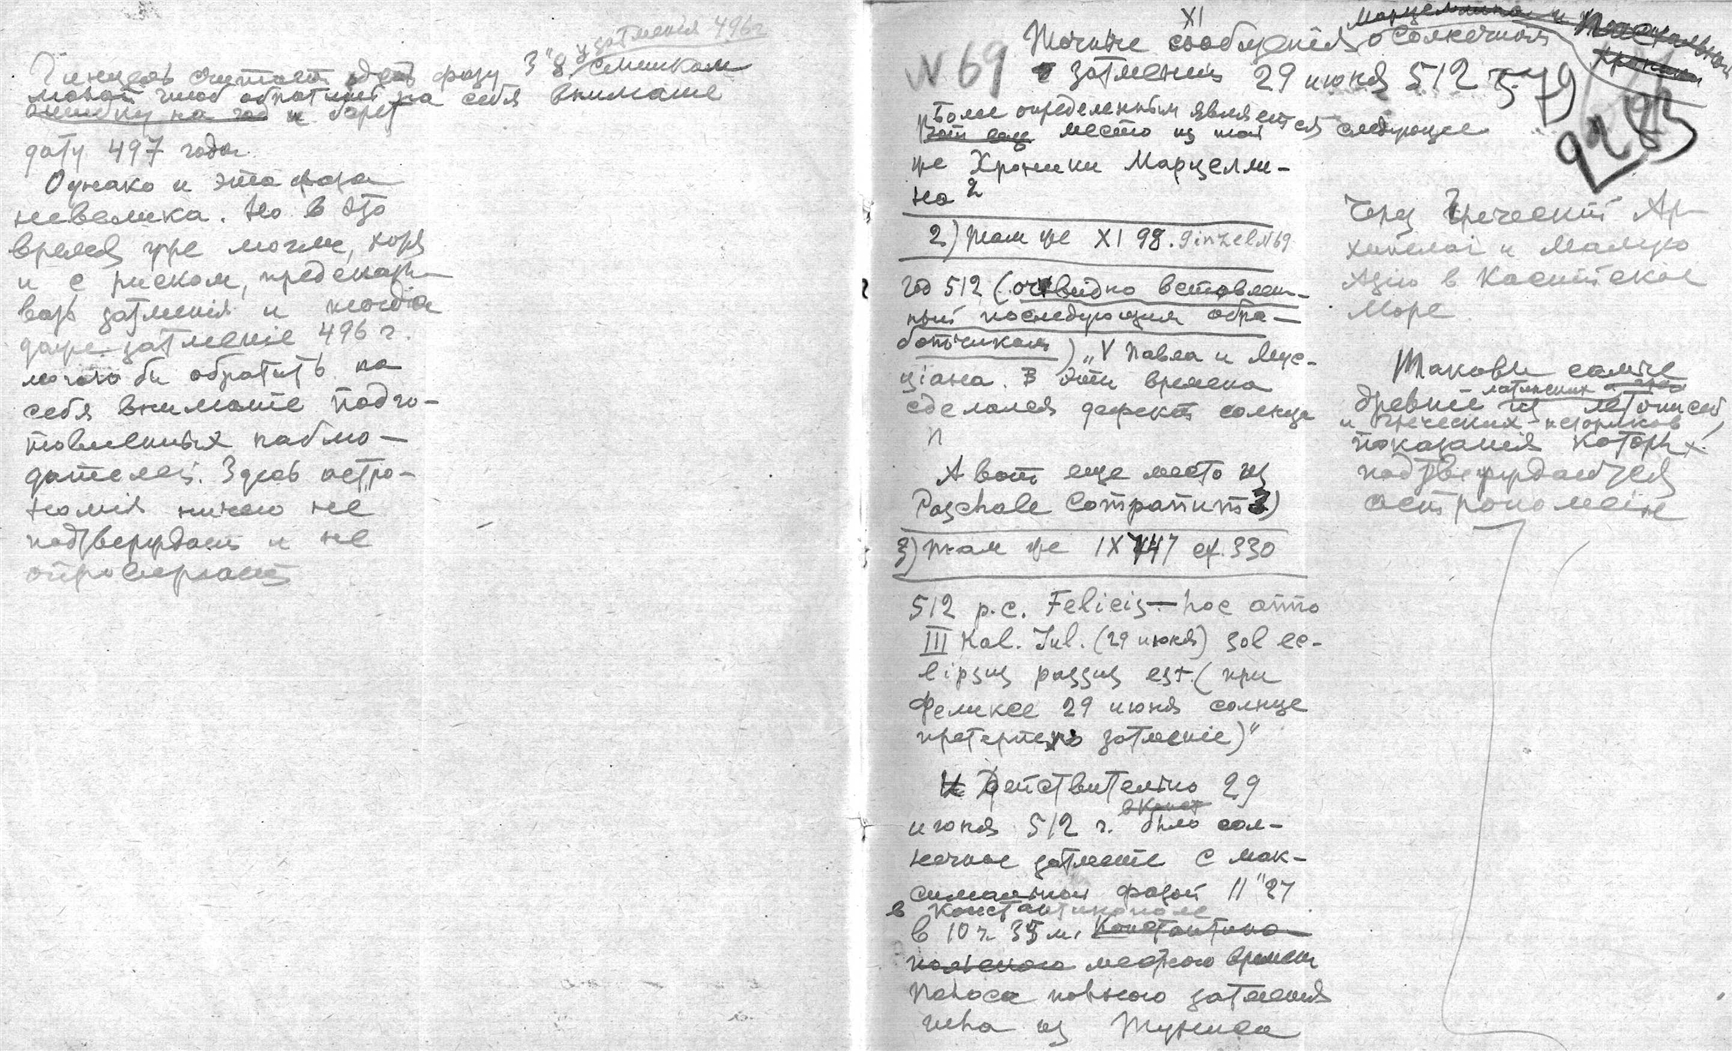 затменiя 496 г
Гинцель считает здесь фазу 3"8 слишком
малой чтоб обратить на себя внимание
ошибку на год и берет
дату 497 года
Однако и эта фаза
невелика. Но в это
время уже могли, хотя
и с риском, предсказы-
вать затменiя и тогда
даже затменiе 496 г.
могло бы обратить на
себя внимание подго-
товленных наблю-
дателей. Здесь астро-
номiя ничего не
подтверждает и не
опровергает
XI
Марцеллина и Пасхальной
Хроники
N 69
Точные сообщенiя о солнечном
затменiи 29 июня 512
579
2283
Более определенным является следующее
место из той
же Хроники Марцелли-
на 2
2) там же XI 98. Ginzel N 69
год 512 (очевидно вставлен-
ный последующим обра-
ботчиком) „V Павла и Мус-
цiана. В эти времена
сделался дефект солнца
"
А вот еще место из
Paschale Campanum 3)
3) там же IX 747 ср. 330
512 p.c. Felicis — hoc anno
III Kal. Jul. (29 июня) sol ec-
lipsus passus est. (при
Феликсе 29 июня солнце
претерпело затменiе)"
И Действительно 29
июня 512 г. было сол-
нечное затменiе с мак-
симальной фазой 11"27
в Константинополе
в 10 ч. 35 м. Константино-
польского местного времени
Полоса полного затменiя
шла из Туниса
Через Греческiй Ар-
хипелаг и Малую
Азiю в Каспiйское
Море
Таковы самые
древнiе из латинских летописей
и Греческих историков,
показанiя которых
подтверждаются
астрономiей